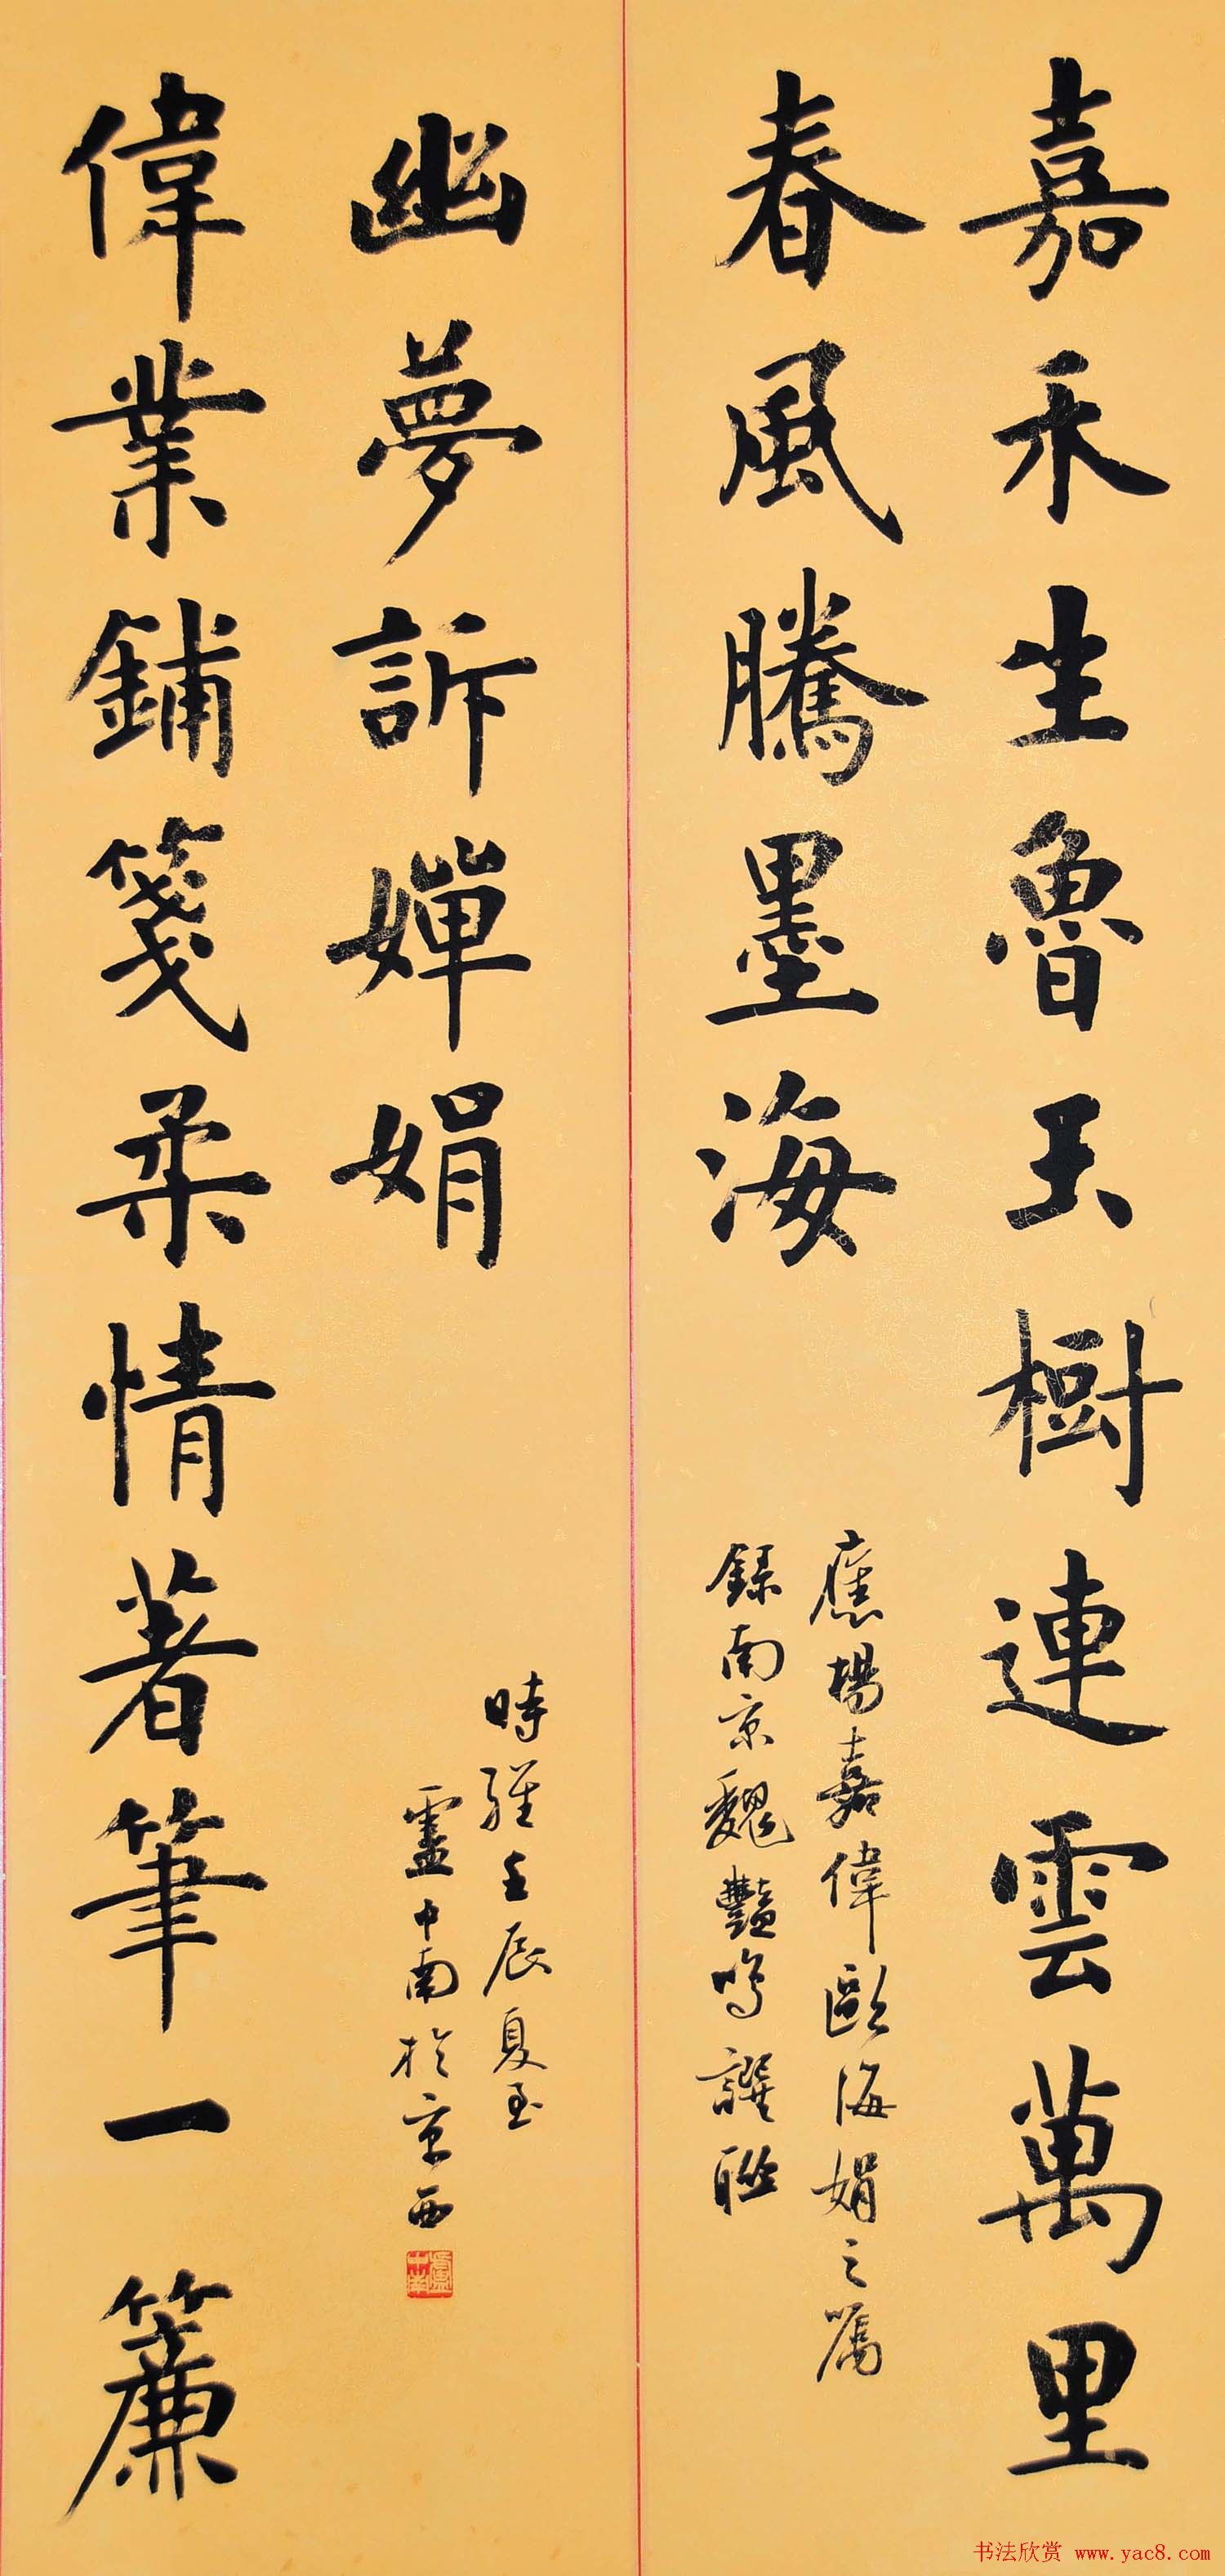 嘉禾生魯玉樹連雲萬里
春風騰墨海
應楊嘉偉歐海娟之囑
錄南京魏豔鳴譔聯
偉業鋪箋柔情著筆一簾
幽夢訴嬋娟
時維壬辰夏至
盧中南於京西
盧中南
书法欣赏 www.yac8.com